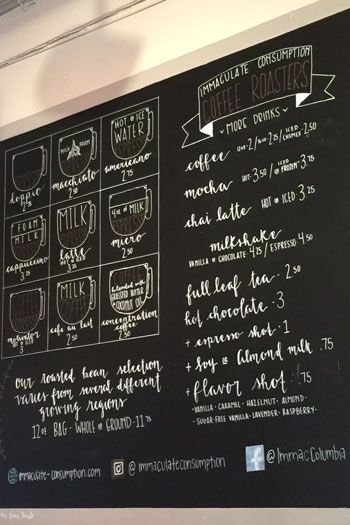 IMMACULATE CONSUMPTION
COFFEE ROASTERS
MORE DRINKS
coffee 12oz·2 / 16oz·2.25 / ICED CHEMEX·2.50
mocha HOT·3.50 / ICED @ FROZEN·3.75
chai latte HOT @ ICED 3.25
milkshake
VANILLA @ CHOCOLATE·4.25 / ESPRESSO 4.50
full leaf tea· 2.50
hot chocolate·3
+ espresso shot·1
+ Soy @ Almond milk .75
+ flavor shot .75
-VANILLA-CARAMEL-HAZELNUT-ALMOND-
-SUGAR-FREE VANILLA-LAVENDER-RASPBERRY-
doppio
2
MILK FOAM
macchiato
2.25
HOT @ ICE
WATER
americano
2.75
FOAM
MILK
cappuccino
3.25
MILK
latte
HOT @ ICED
3.25
4oz @ MILK
micro
2.50
MILK
cafe au lait
2.50
blended with
GRASSFED BUTTER
+ COCONUT OIL
concentration
coffee
3.50
our roasted bean selection
varies from several different
growing regions
12oz BAG-WHOLE @ GROUND·11.75
immaculate-consumption.com
@immaculateconsumption
f @ImmacColumbia